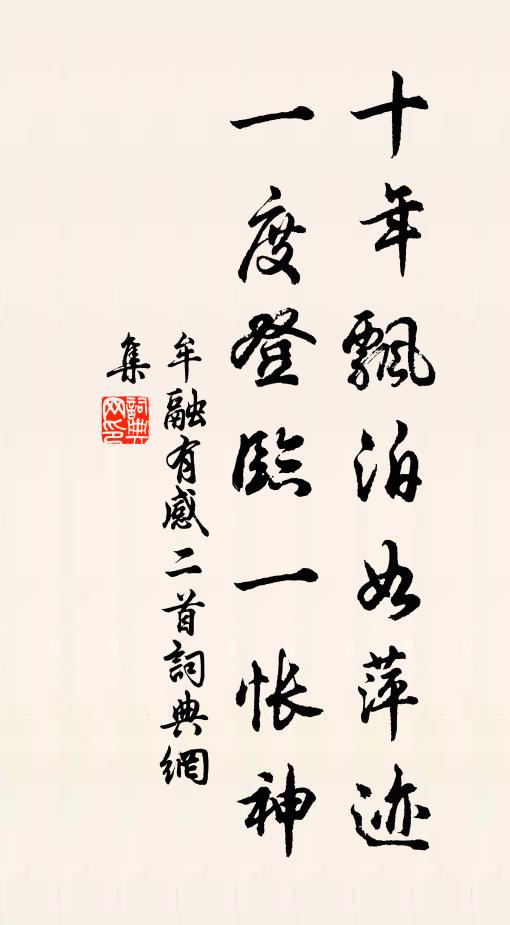 十年飄泊如萍迹
一度登臨一悵神
牟融有感二首詞典網
集
詞典
网印